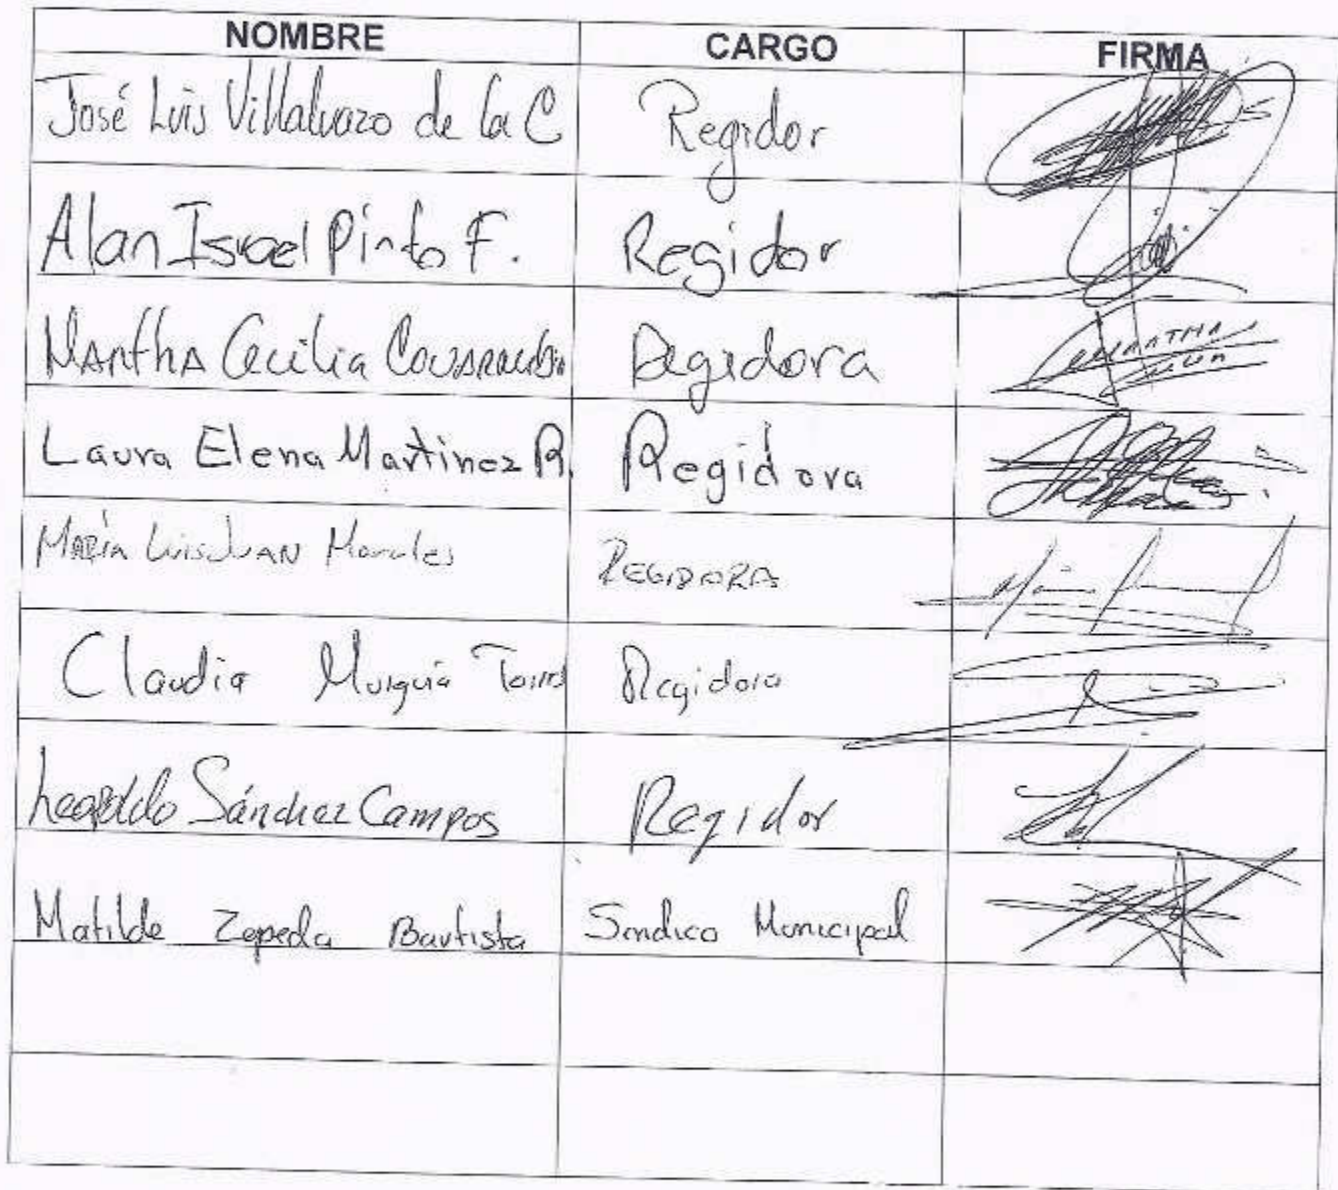 NOMBRE CARGO FIRMA
José Luis Villalvazo de la C Regidor
Alan Israel Pinto F. Regidor
Martha Cecilia Regidora
Laura Elena Martinez R. Regidora
María Luis Juan Morales REGIDORA
Claudia Murguía Torres Regidora
Leopoldo Sánchez Campos Regidor
Matilde Zepeda Bautista Sindico Municipal